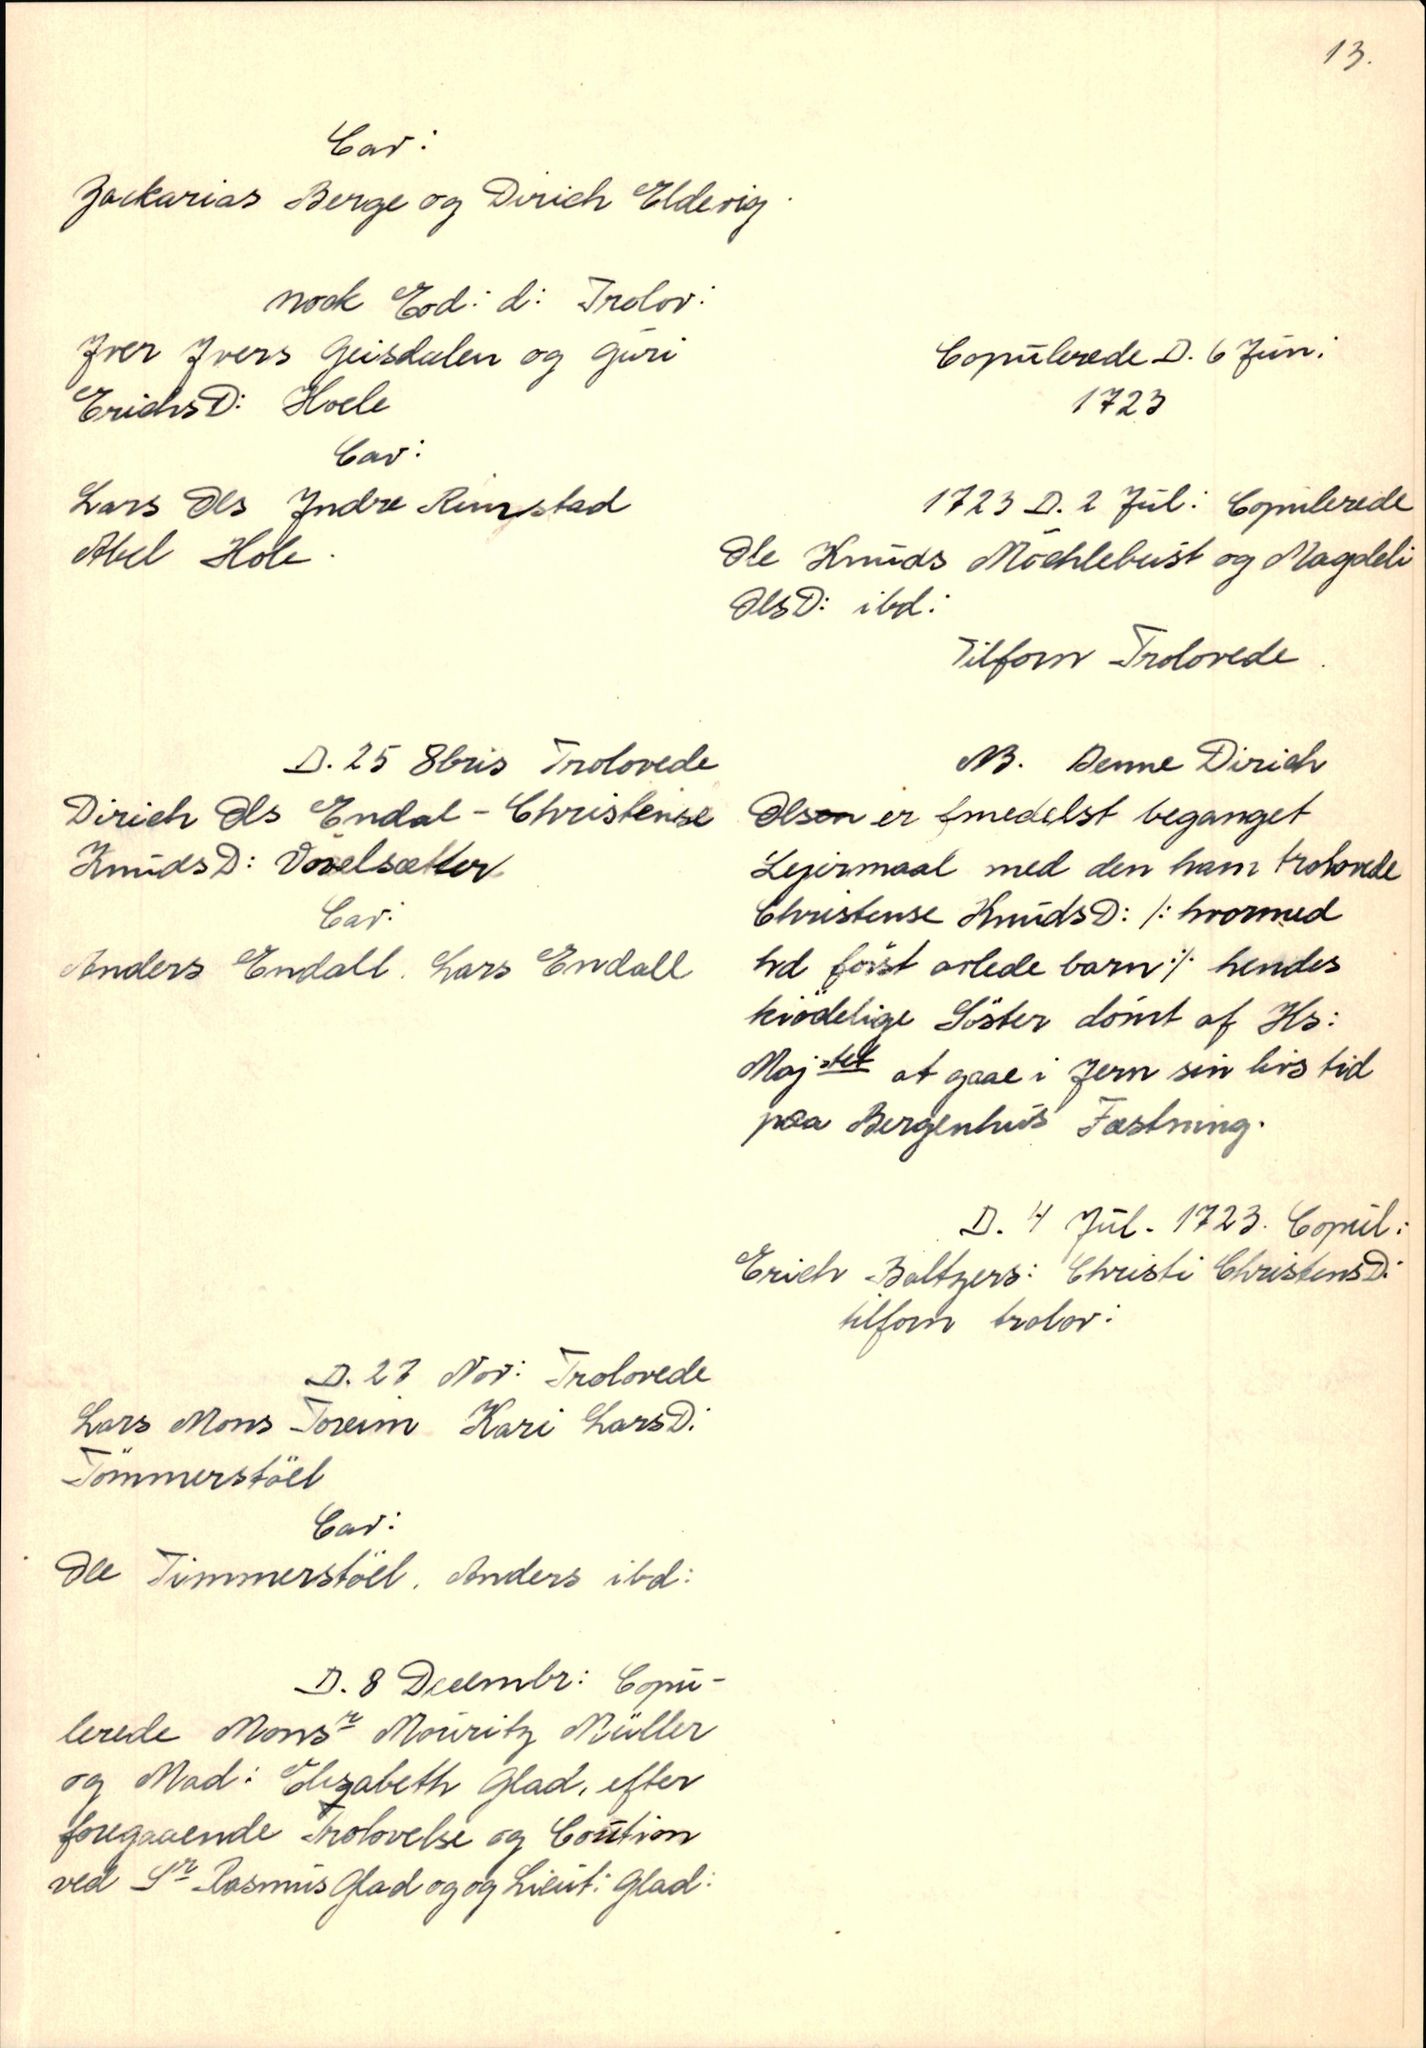 13.
Cav:
Zackarias Berge og Dirich Eldevig.
nock Eod: d: Trolov:
Iver Ivers Geisdalen og Guri
ErichsD: Hoele
Cav:
Lars Ols Indre Rimstad
Abel Hole.
D. 25 8bris Trolovede
Dirich Ols Endal - Christense
KnudsD: Vovelsætter
Cav:
Anders Endall. Lars Endall
D. 27 Nov: Trolovede
Lars Mons Toreim Kari LarsD:
Tömmerstöel
Cav:
Ole Timmerstöel. Anders ibd:
D. 8 Decembr: Copu-
lerede Monsr Mouritz Müller
og Mad: Elizabeth Glad, efter
foregaaende Trolovelse og Coution
ved Sr Rasmus Glad og og Lieut: Glad:
Copulerede D. 6 Jun:
1723
1723 D. 2 Jul: Copulerede
Ole Knuds Möchlebust og Magdeli
OlsD: ibd:
Tilforn Trolovede.
NB. Denne Dirich
Olsen er fmedelst beganget
Lejermaal med den ham trolovede
Christense KnudsD: /: hvormed
hd först avlede barn :/ hendes
kiödelige Söster dömt af Hs:
Majstet at gaae i Jern sin livs tid
paa Bergenhus Fæstning.
D. 4 Jul. 1723. Copul:
Erich Baltzers: Christi ChristensD:
tilforn trolov: